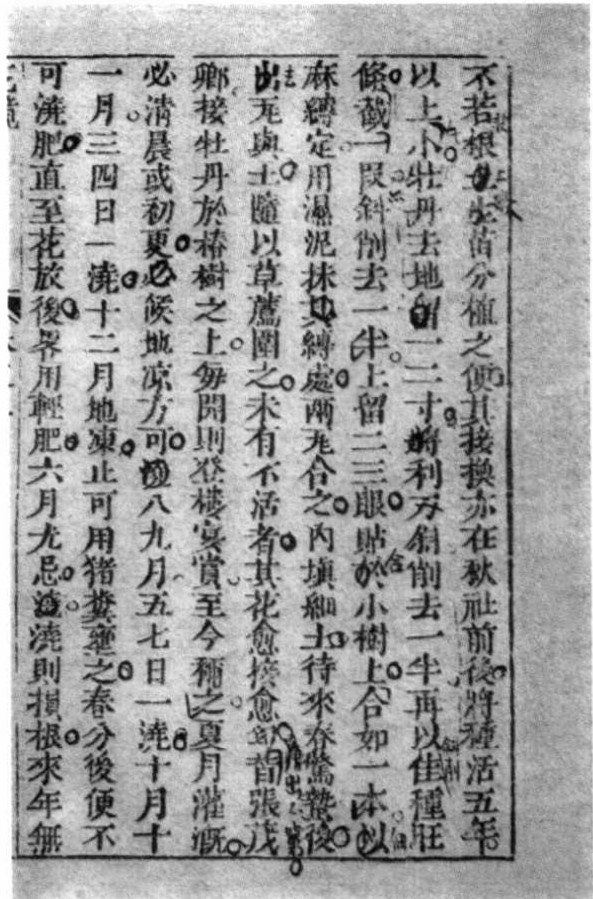 不若根上生苗分植之便其接換亦在秋社前後將種活五年
以上小牡丹去地留一二寸將利刀斜削去一半再以佳種旺
條截一段斜削去一半上留二三眼貼於小樹上合如一本以
麻縛定用濕泥抹其縛處兩瓦合之內塡細土待來春驚蟄後
出瓦與土隨以草薦圍之未有不活者其花愈接愈 昔張茂
卿接牡丹於椿樹之上每開則登樓宴賞至今稱之夏月灌漑
必清晨或初更必候地凉方可澆八九月五七日一澆十月十
一月三四日一澆十二月地凍止可用猪糞壅之春分後便不
可澆肥直至花放後畧用輕肥六月尤忌澆澆則損根來年無